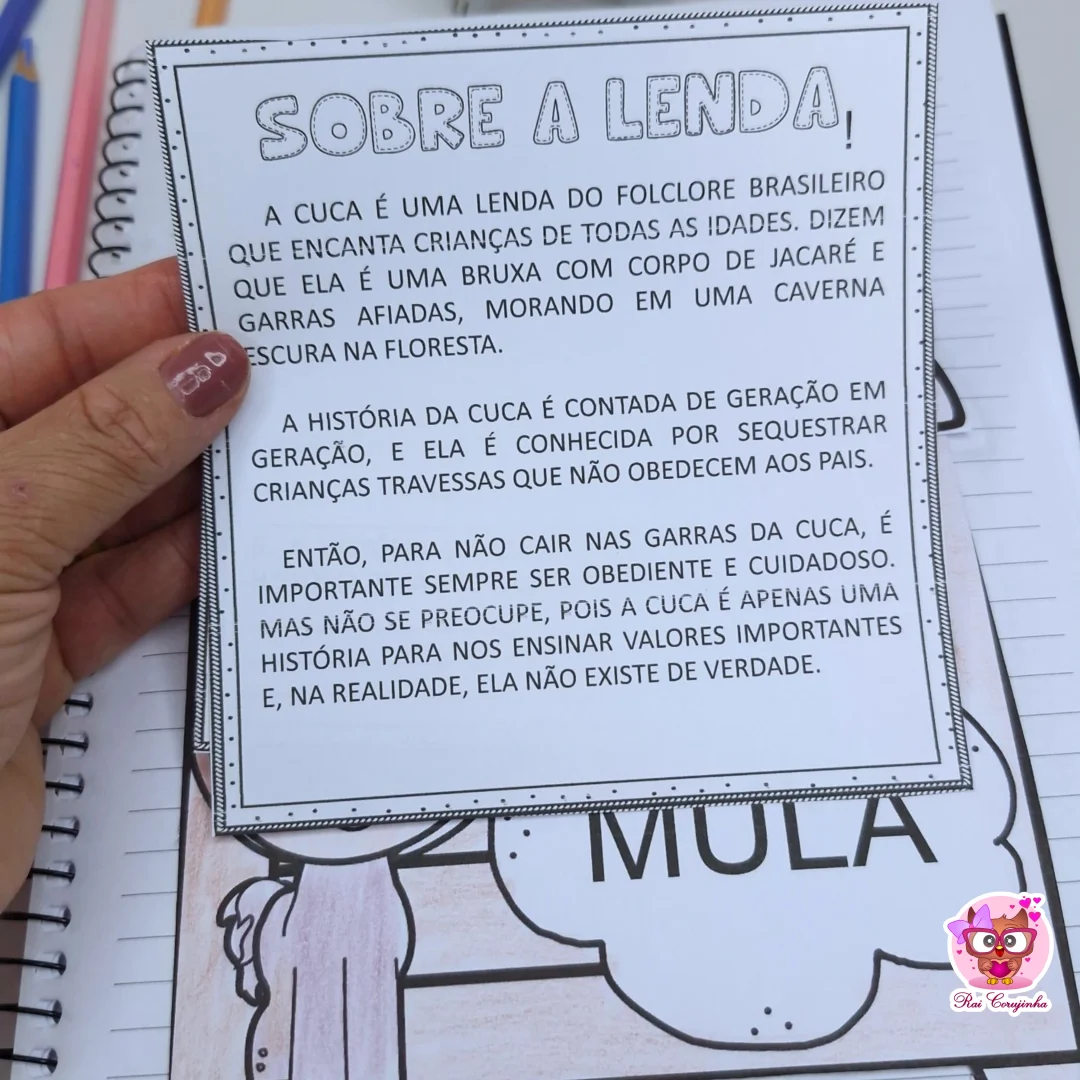 SOBRE A LENDA!
A CUCA É UMA LENDA DO FOLCLORE BRASILEIRO
QUE ENCANTA CRIANÇAS DE TODAS AS IDADES. DIZEM
QUE ELA É UMA BRUXA COM CORPO DE JACARÉ E
GARRAS AFIADAS, MORANDO EM UMA CAVERNA
ESCURA NA FLORESTA.
A HISTÓRIA DA CUCA É CONTADA DE GERAÇÃO EM
GERAÇÃO, E ELA É CONHECIDA POR SEQUESTRAR
CRIANÇAS TRAVESSAS QUE NÃO OBEDECEM AOS PAIS.
ENTÃO, PARA NÃO CAIR NAS GARRAS DA CUCA, É
IMPORTANTE SEMPRE SER OBEDIENTE E CUIDADOSO.
MAS NÃO SE PREOCUPE, POIS A CUCA É APENAS UMA
HISTÓRIA PARA NOS ENSINAR VALORES IMPORTANTES
E, NA REALIDADE, ELA NÃO EXISTE DE VERDADE.
MULA
Rai Corujinha